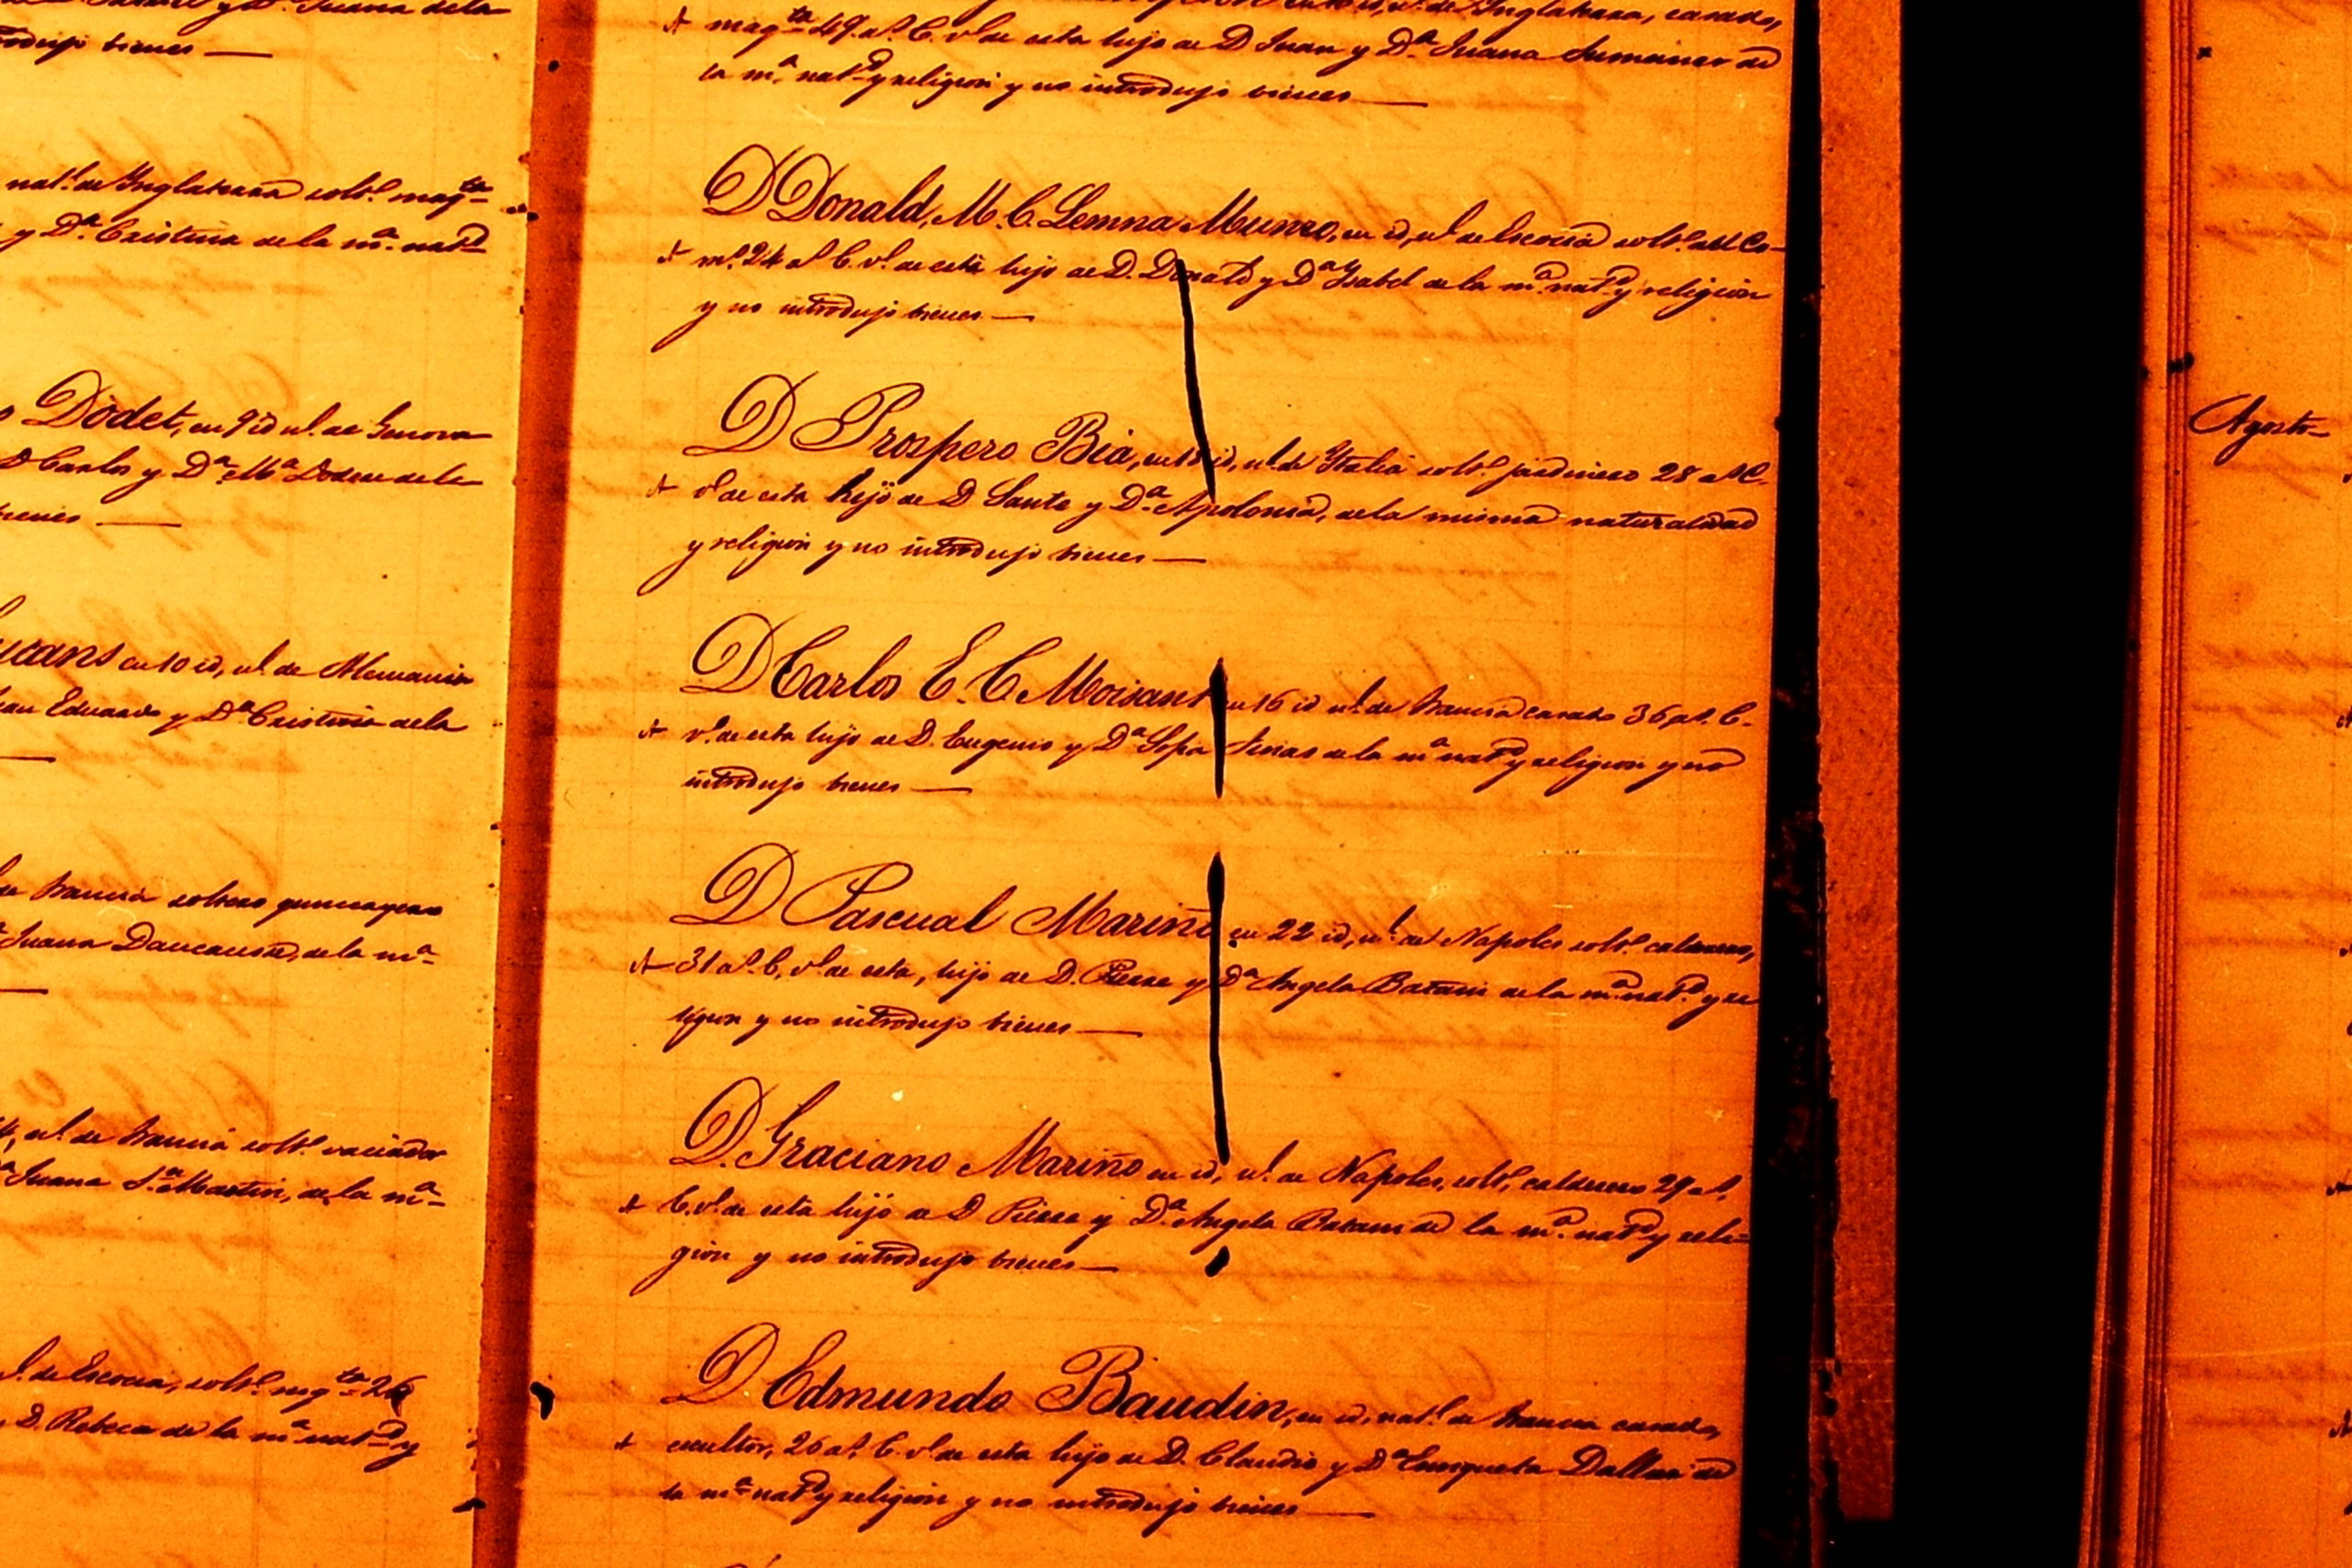 y Dª Juana dela
introdujo bienes —
natl. de Inglaterra solto. magta
y Dª Cristina de la mª. natd
Dodet, en 9 id nl. de Genova
D Carlos y Dª Mª Dodere de la
bienes —
en 10 id, nl. de Alemania
Eduardo y Dª Cristina dela
de Francia soltero
Juana de la mª
nl. de Francia solto. vaciador
Juana Sn Martin, de la mª
de Escocia, solto. mqta 26
D. Rebeca de la mª natd y
de Inglaterra, casado,
A magta 49 as. C. vo. de esta hijo de D Juan y Dª Juana de
la mª. natd y religion y no introdujo bienes —
D Donald, M. C. Lemna Munro, en id, nl. de Escocia solto. del Co-
A mo. 24 as. C. vo. de esta hijo de D. Donald y Dª Ysabel de la mª natd y religion
y no introdujo bienes —
D Prospero Bia, en id, nl. de Italia solto. jardinero 28 as C.
A vo. de esta hijo de D Santo y Dª Apolonia, dela misma naturalidad
y religion y no introdujo bienes —
D Carlos E. C. Moisant en 16 id nl. de Francia casado 36 as. C.
A vo. de esta hijo de D. Eugenio y Dª Sofia de la mª natd y religion y no
introdujo bienes —
D Pascual Mariño en 22 id, nl. de Napoles solto. calderero,
A 31 as. C. vo. de esta, hijo de D. Pierre y Dª Angela Batani de la mª natd. y re
ligion y no introdujo bienes —
D. Graciano Mariño en id, nl. de Napoles, solto. calderero 29 as.
A C. vo. de esta hijo de D Pierre y Dª Angela Batani de la mª. natd y reli-
gion y no introdujo bienes —
D Edmundo Baudin, en id, natl. de Francia casado,
A escultor, 26 as. C. vo. de esta hijo de D. Claudio y Dª Enriqueta de
la mª natd y religion y no introdujo bienes —
Agosto